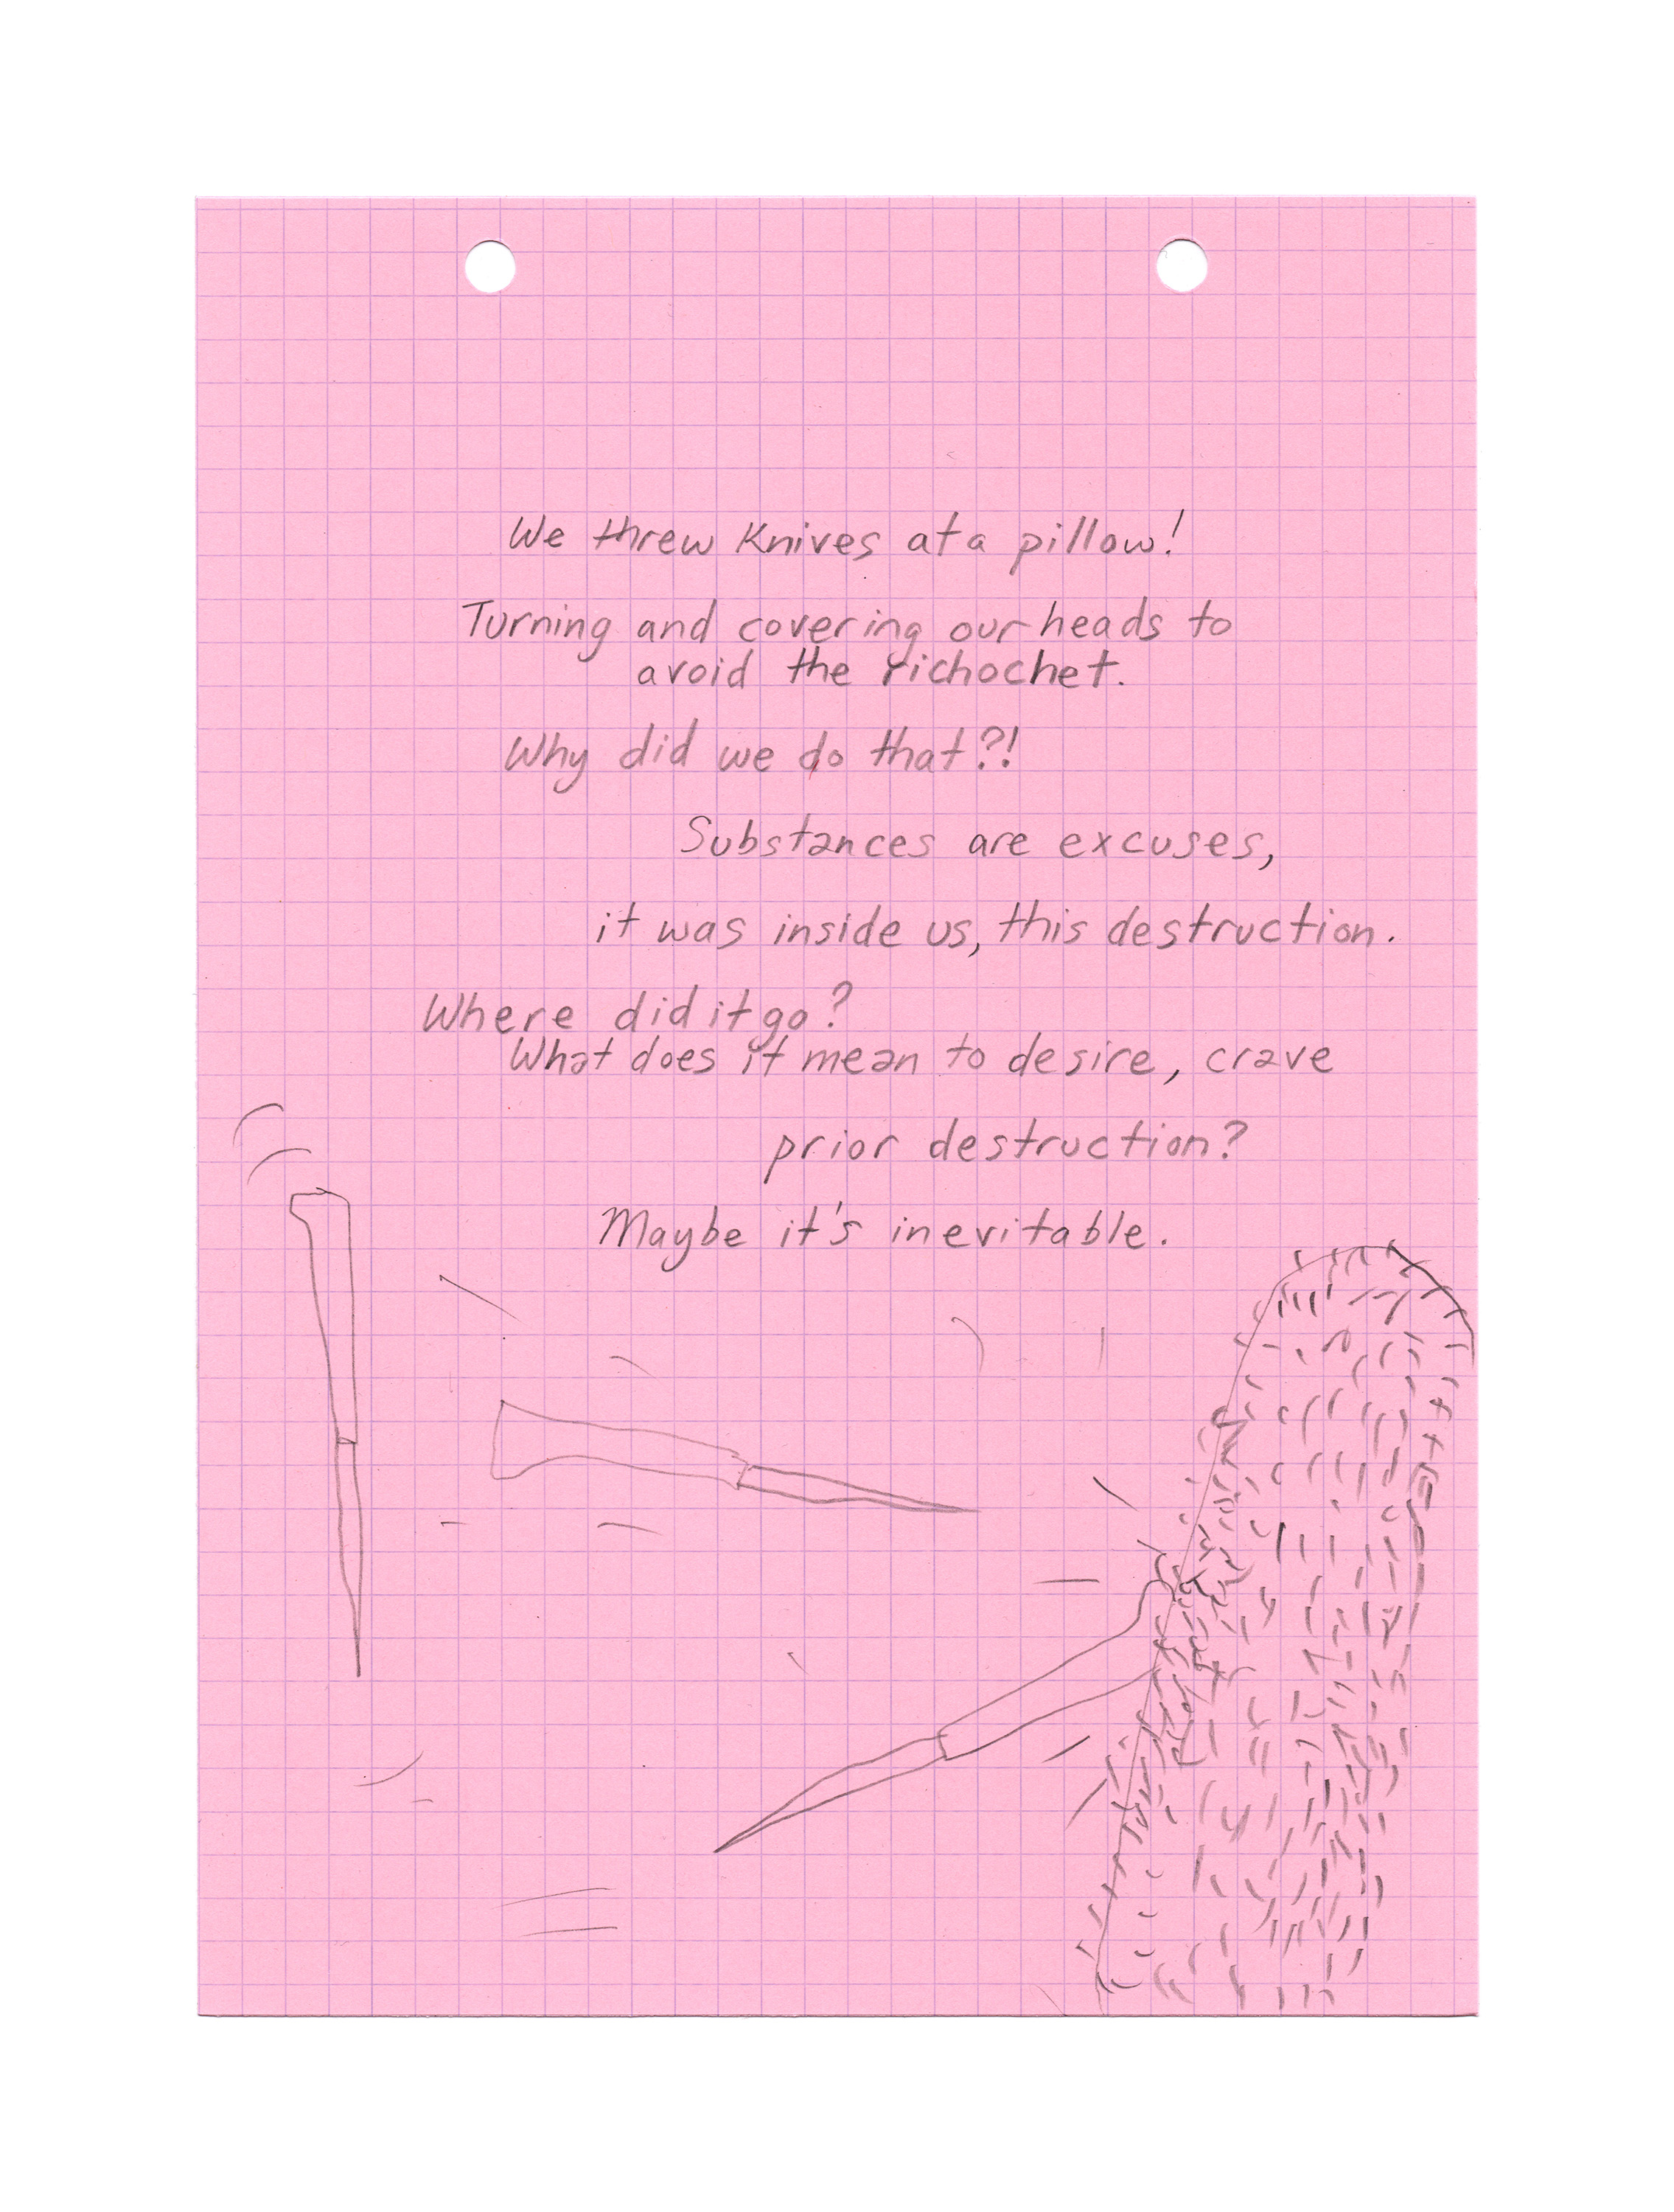 We threw Knives at a pillow!
Turning and covering our heads to
avoid the richochet.
Why did we do that?!
Substances are excuses,
it was inside us, this destruction.
Where did it go?
What does it mean to desire, crave
prior destruction?
Maybe it's inevitable.